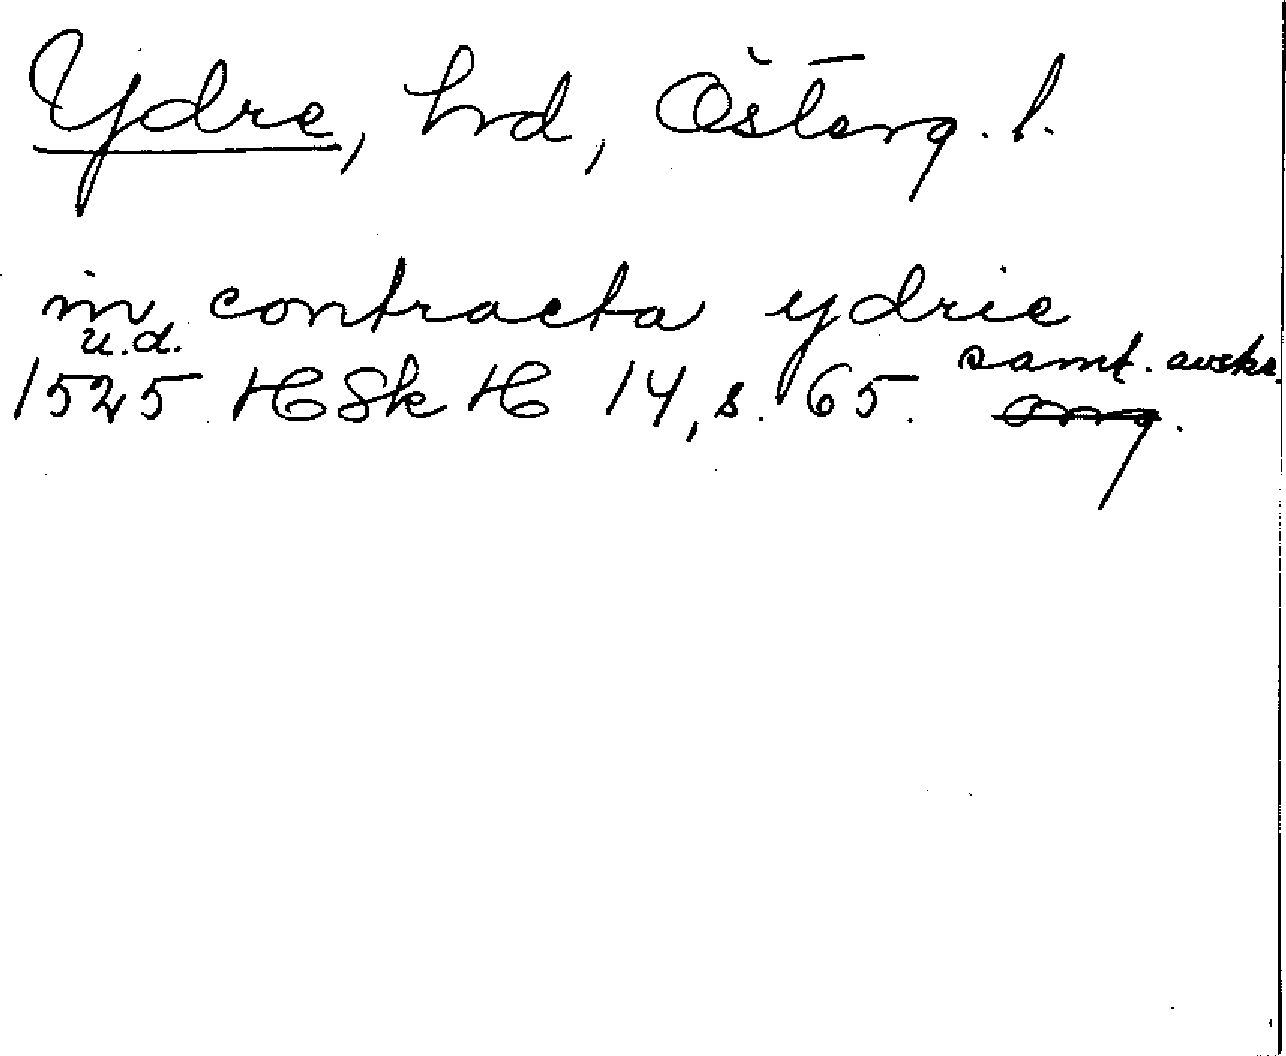 Ydre, hrd, Österg. l.
in contracta ydrie
u.d. samt. avskr.
1525 HSkH 14, s. 65. orig.